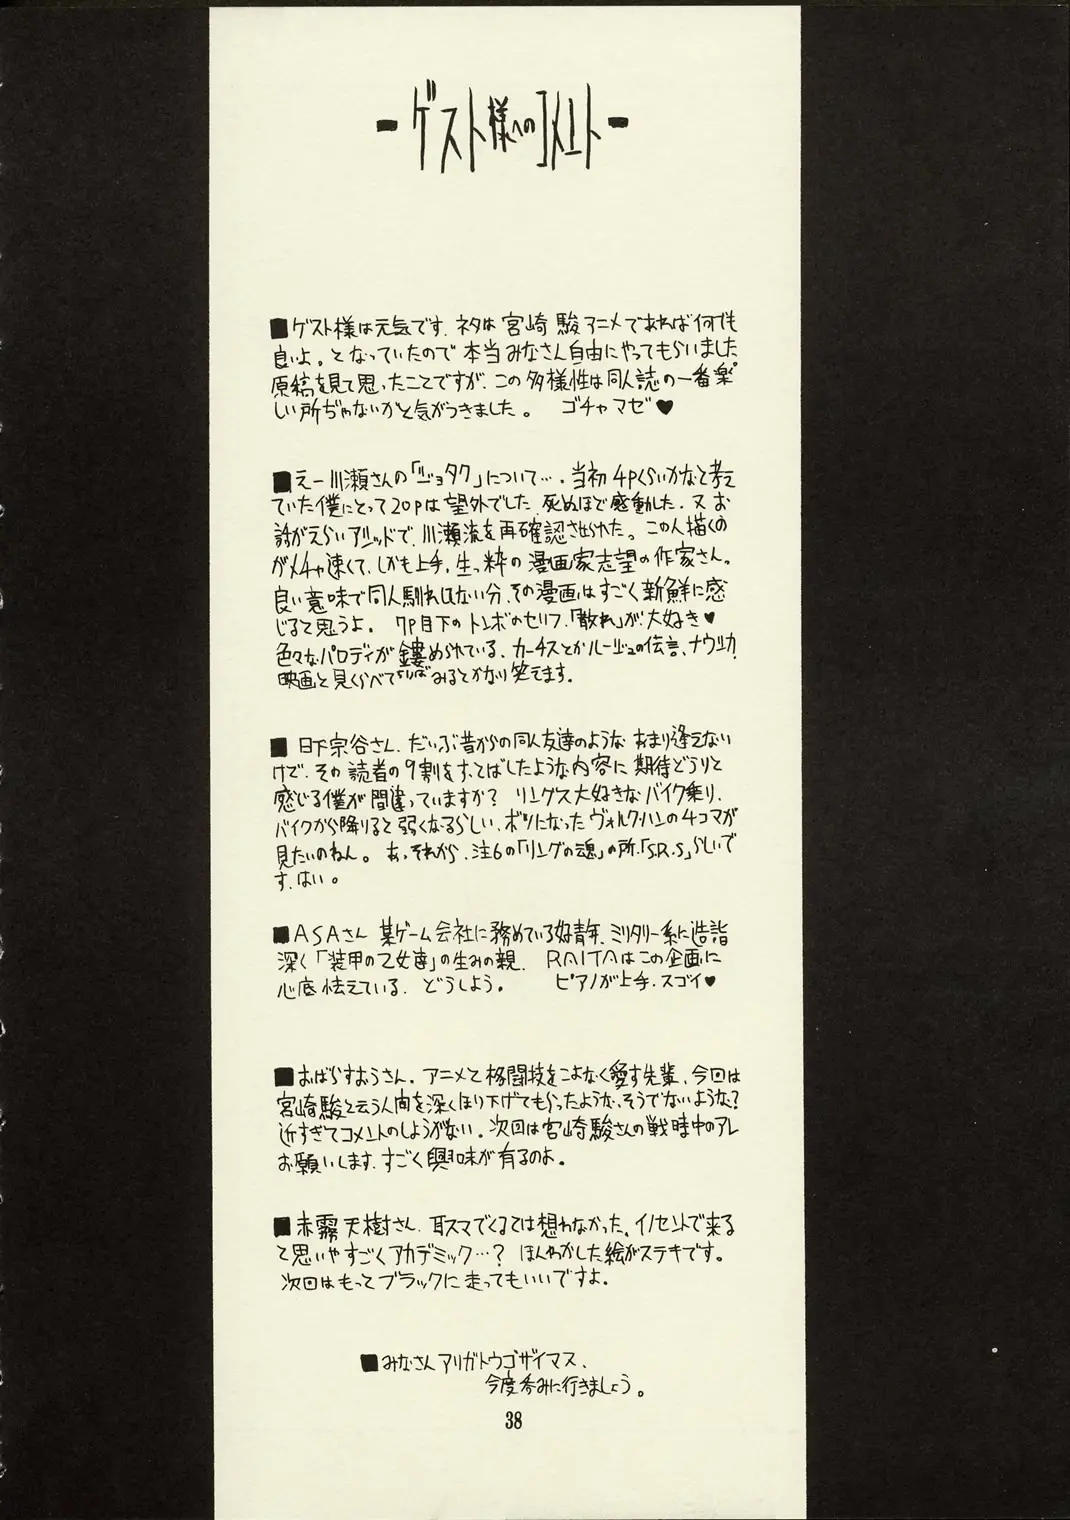 ーゲスト様へのコメントー
■ゲスト様は元気です。ネタは宮崎駿アニメであれば何でも
良いよ。となっていたので本当みなさん自由にやってもらいました。
原稿を見て思ったことですが、この多様性は同人誌の一番楽
しい所ぢゃないかと気がつきました。 ゴチャマゼ♥
■えー川瀬さんの「リジョタク」について…。当初4Pくらいかなと考え
ていた僕にとって20Pは望外でした。死ぬほど感動した。又お
話がえらいアシッドで、川瀬流を再確認させられた。この人描くの
がメチャ速くて、しかも上手。生っ粋の漫画家志望の作家さん。
良い意味で同人馴れしない分、その漫画はすごく新鮮に感
じると思うよ。 7P目下のトンボのセリフ、「散れ」が大好き♥
色々なパロディが鏤められている、カーチスとかルージュの伝言、ナウシカ。
映画と見くらべてよりばみるとかなり笑えます。
■日下宗谷さん。だいぶ昔からの同人友達のようなあまり逢えない
けど、その読者の9割をすっとばしたような内容に期待どうりと
感じる僕が間違っていますか? リングス大好きなバイク乗り、
バイクから降りると弱くなるらしい、ボツになったヴォルク・ハンの4コマが
見たいのねん。 あ、それから、注6の「リングの魂」の所、「S.R.S」らしいで
す、はい。
■ASAさん 某ゲーム会社に務めている好青年、ミリタリー系に造詣
深く「装甲の乙女達」の生みの親。 RAITAはこの企画に
心底怯えている。どうしよう。 ピアノが上手。スゴイ♥
■おばらすおうさん。アニメと格闘技をこよなく愛す先輩、今回は
宮崎駿と云う人間を深くほり下げてもらったような、そうでないような?
近すぎてコメントのしようがない。次回は宮崎駿さんの戦時中のアレ
お願いします、すごく興味が有るのよ。
■赤霧天樹さん。耳スマでくるとは想わなかった。イノセントで来る
と思いやすごくアカデミック…? ほんわかした絵がステキです。
次回はもってブラックに走ってもいいですよ。
■みなさんアリガトウゴザイマス、
今度呑みに行きましょう。
38